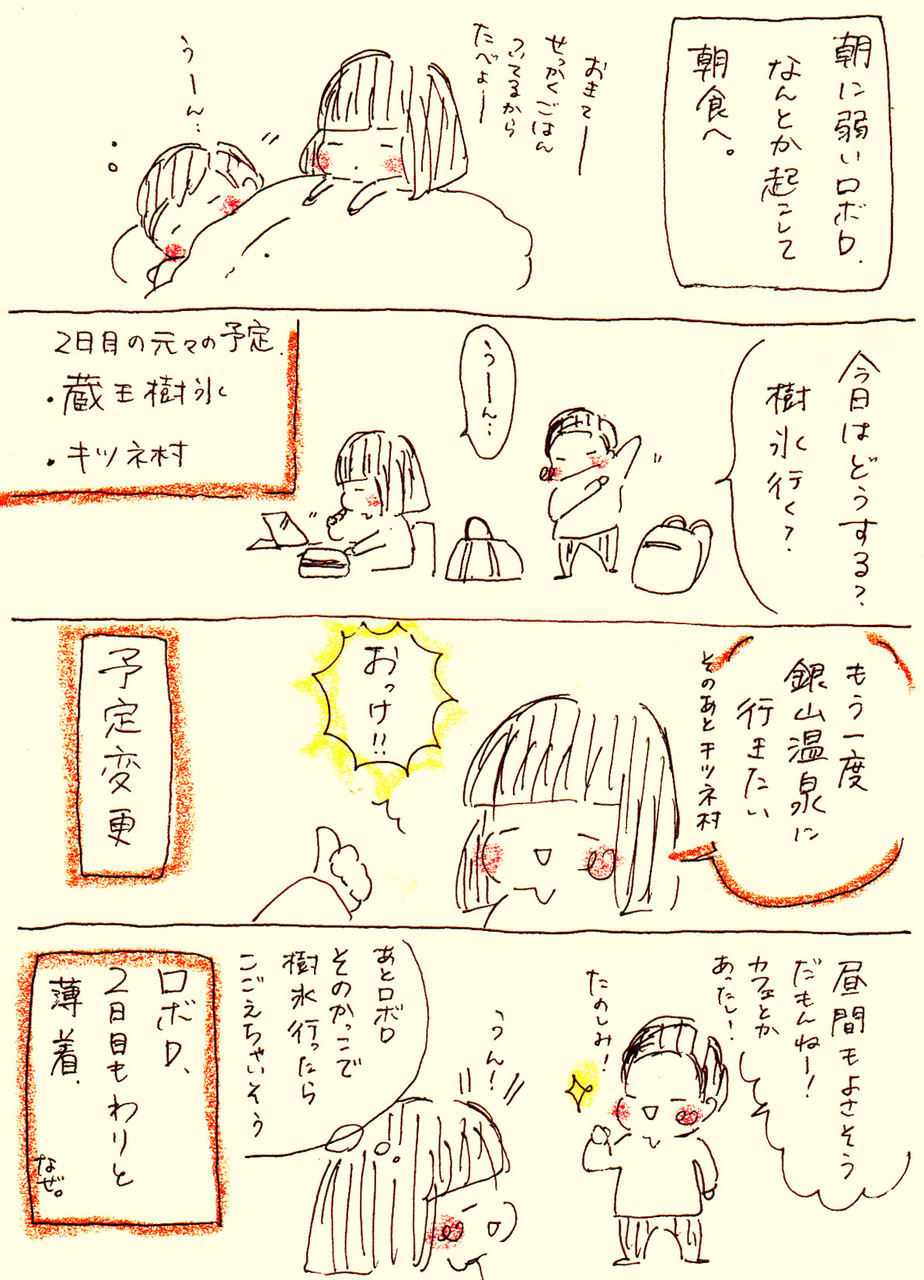 朝に弱いロボロ、
なんとか起こして
朝食へ。
おきてー
せっかくごはん
ついてるから
たべよー
うーん…
今日はどうする?
樹氷行く?
うーん…
2日目の元々の予定.
・蔵王樹氷
・キツネ村
もう一度
銀山温泉に
行きたい
そのあとキツネ村
おっけ!!
予定変更
昼間もよさそう
だもんねー!
カフェとか
あったし!
たのしみ!
うん!
あとロボロ
そのかっこで
樹氷行ったら
こごえちゃいそう
ロボロ、
2日目もわりと
薄着.
なぜ。